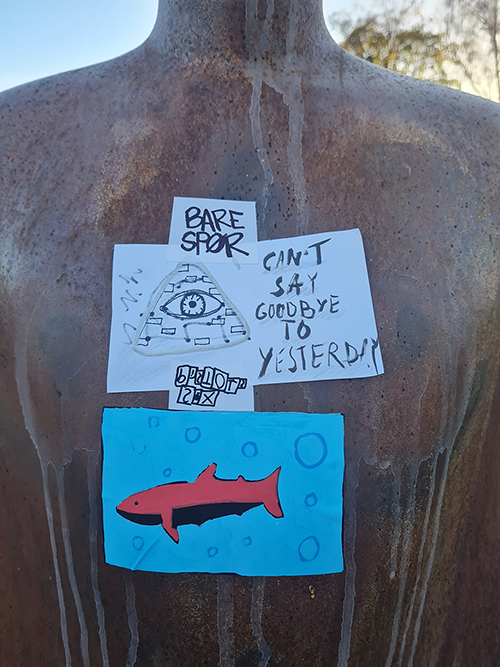 BARE
SPØR
CAN'T
SAY
GOODBYE
TO
YESTERDAY